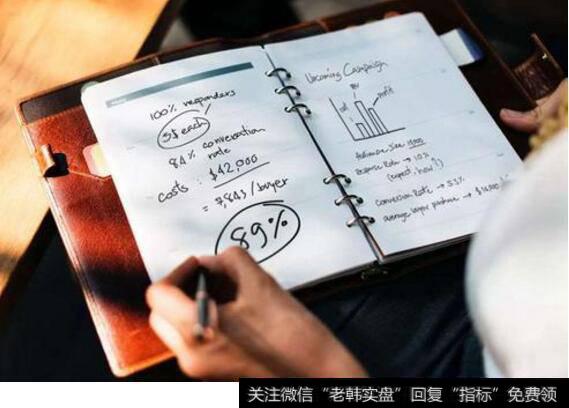 100% responders
5$ each
84% conversation
rate
costs : $42,000
= 7,843/buyer
89%
Upcoming Campaign
profit
Audience Size
Response Rate → 10%
(expect. how?)
Conversion Rate → 5.3%
average buyer purchase → $
关注微信“老韩实盘”回复“指标”免费领